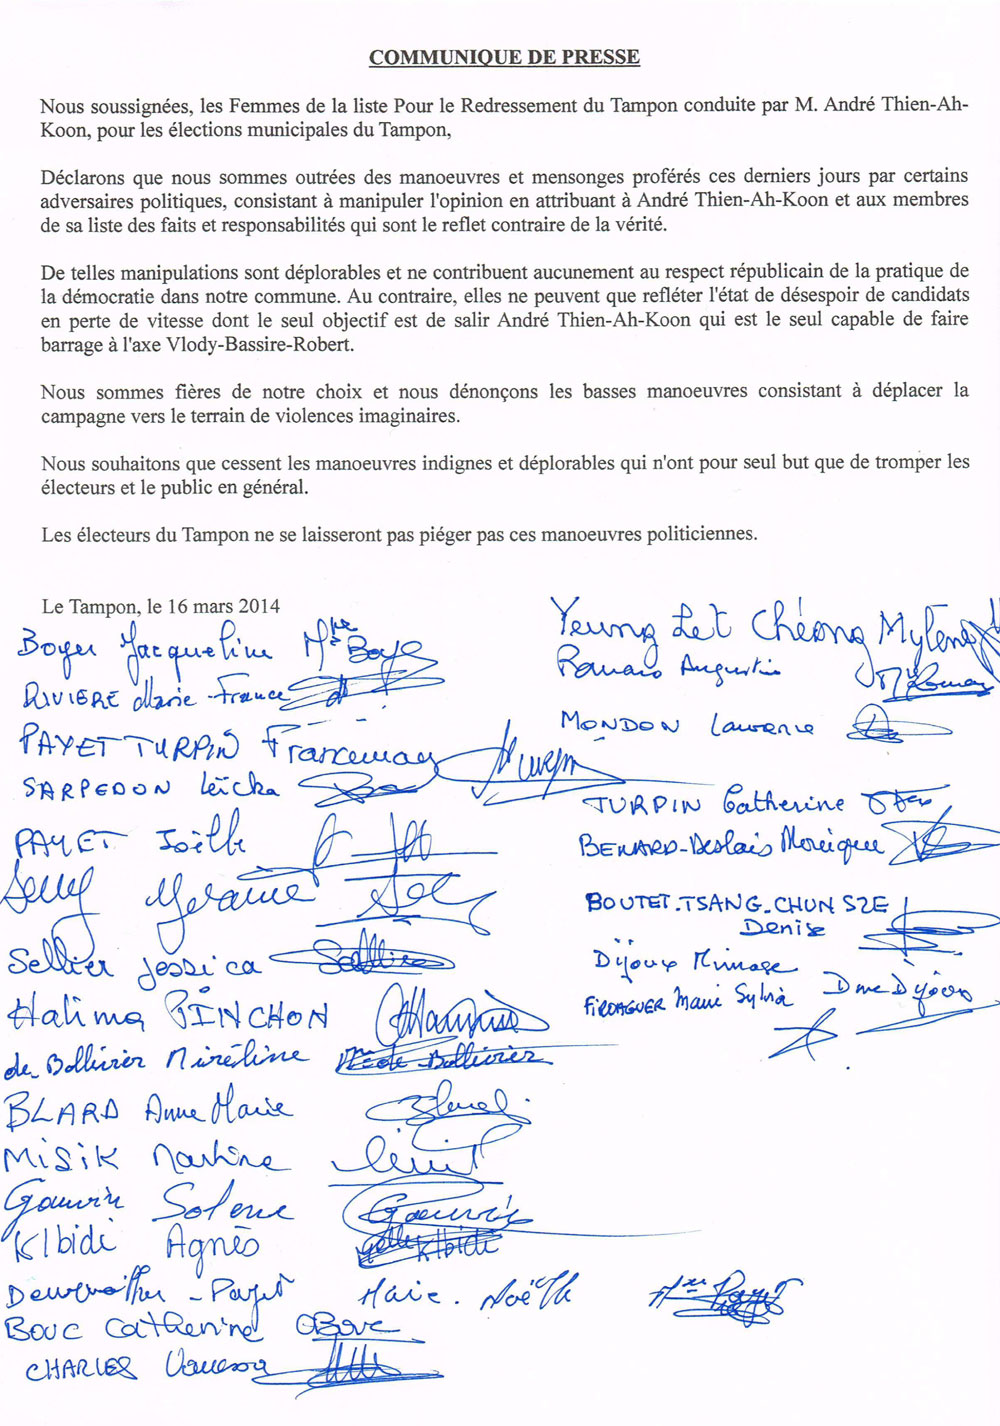 COMMUNIQUE DE PRESSE
Nous soussignées, les Femmes de la liste Pour le Redressement du Tampon conduite par M. André Thien-Ah-
Koon, pour les élections municipales du Tampon,
Déclarons que nous sommes outrées des manoeuvres et mensonges proférés ces derniers jours par certains
adversaires politiques, consistant à manipuler l'opinion en attribuant à André Thien-Ah-Koon et aux membres
de sa liste des faits et responsabilités qui sont le reflet contraire de la vérité.
De telles manipulations sont déplorables et ne contribuent aucunement au respect républicain de la pratique de
la démocratie dans notre commune. Au contraire, elles ne peuvent que refléter l'état de désespoir de candidats
en perte de vitesse dont le seul objectif est de salir André Thien-Ah-Koon qui est le seul capable de faire
barrage à l'axe Vlody-Bassire-Robert.
Nous sommes fières de notre choix et nous dénonçons les basses manoeuvres consistant à déplacer la
campagne vers le terrain de violences imaginaires.
Nous souhaitons que cessent les manoeuvres indignes et déplorables qui n'ont pour seul but que de tromper les
électeurs et le public en général.
Les électeurs du Tampon ne se laisseront pas piéger pas ces manoeuvres politiciennes.
Le Tampon, le 16 mars 2014
Boyer Jacqueline
RIVIERE Marie-France
PAYET TURPIN
SARPEDON
PAYET Joëlle
Sellier Jessica Sellier
Halima PINCHON
de Bollivier
BLARD Anne Marie
MISIK Martine
Gauvin Solene Gauvin
Klbidi Agnès Klbidi
Payet Marie-Noëlle Payet
BOUC Catherine Bouc
CHARLES Vanessa
Yeung Let Cheong Mylène
Augustin
MONDON Laurence
TURPIN Catherine
BENARD-Deslais Monique
BOUTET-TSANG-CHUN SZE
Denise
Dijoux Dijoux
Sylvia